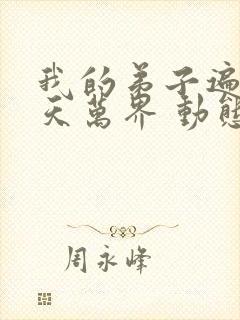 我的弟子遍
天萬界 動態
周永峰